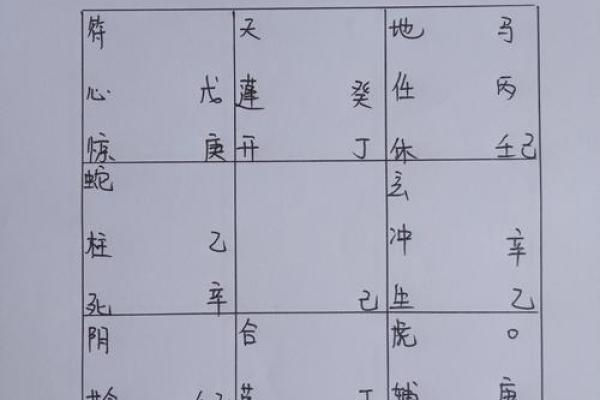 符 天 地 马
心 戊 蓬 癸 任 丙
惊 庚 开 丁 休 壬己
蛇 玄
柱 乙 冲 辛
死 辛 己 生 乙
阴 合 虎 o
辅